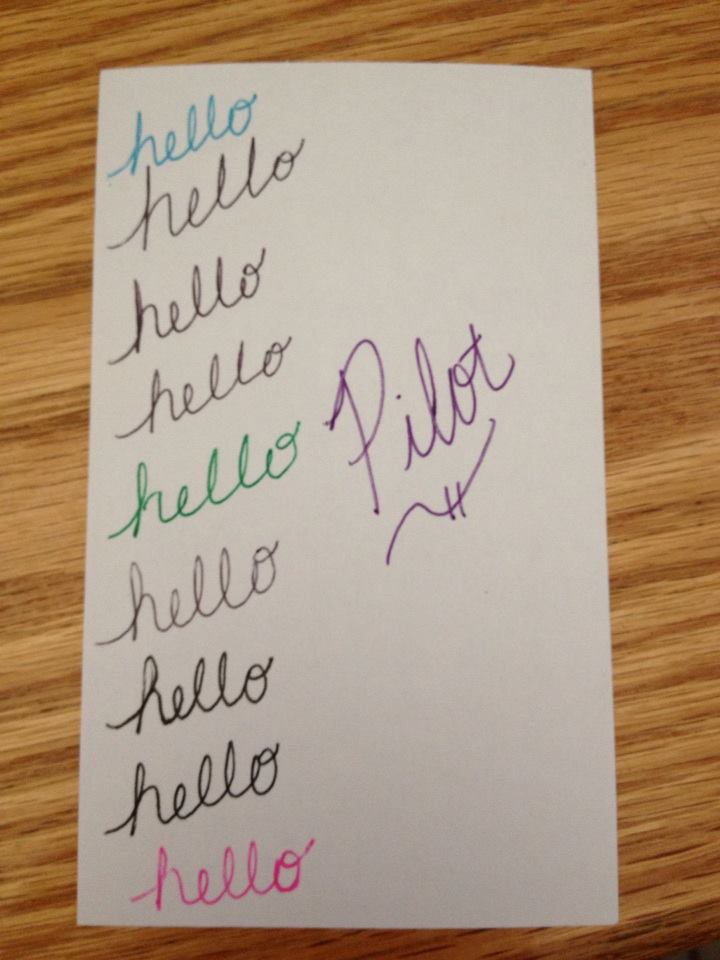 hello
hello
hello
hello
hello
hello
hello
hello
hello
Pilot